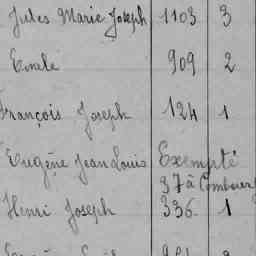 Jules Marie Joseph 1103 3
Emile 909 2
François Joseph 124 1
Eugène Jean Louis Exempté
37 à Combourg
Henri Joseph 336 1